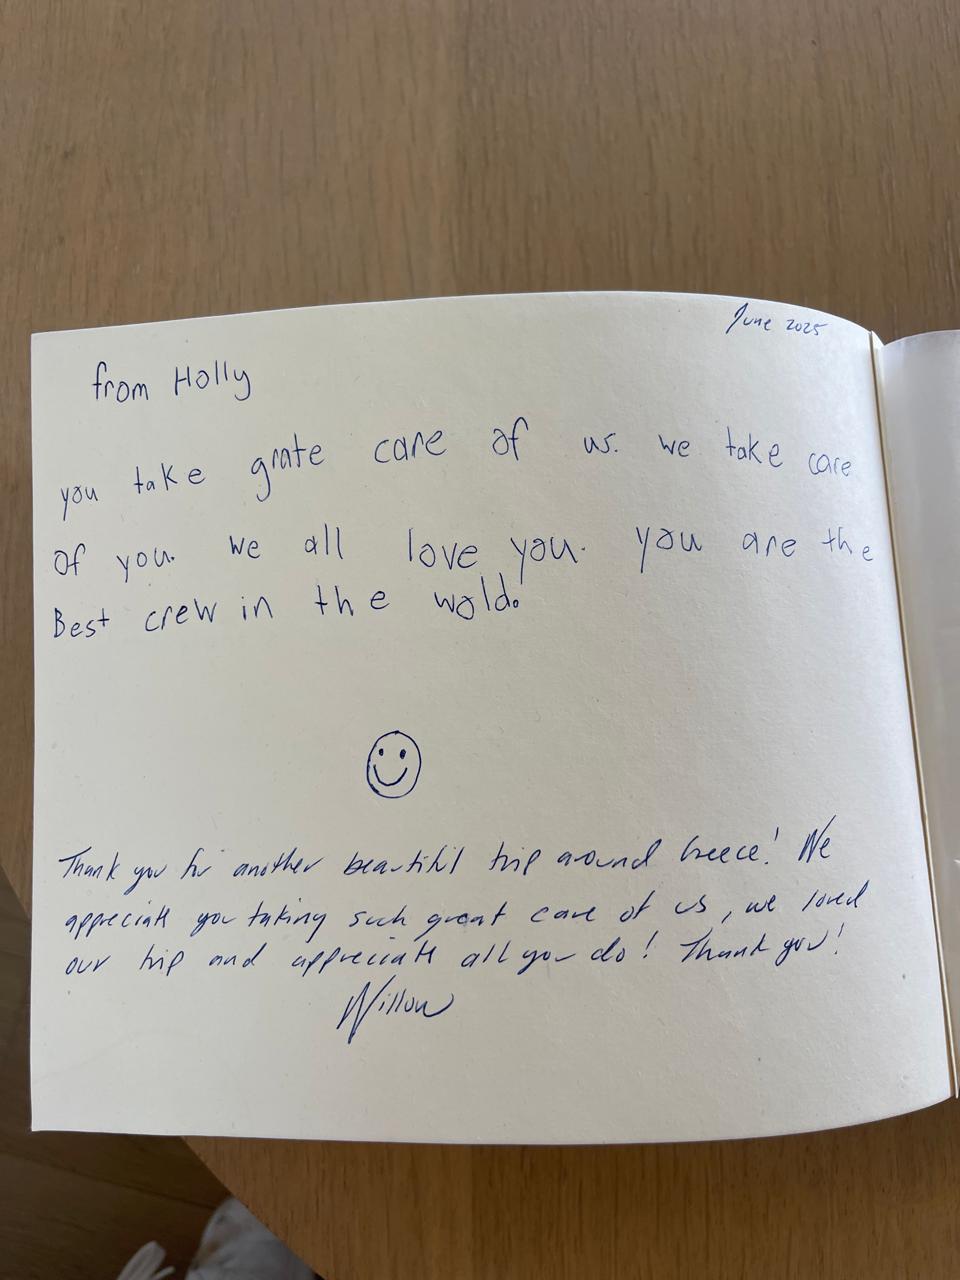 June 2025
from Holly
you take grate care of us. we take care
of you. we all love you. you are the
Best crew in the wold.
Thank you for another beautiful trip around Greece! We
appreciate you taking such great care of us, we loved
our trip and appreciate all you do! Thank you!
Willow